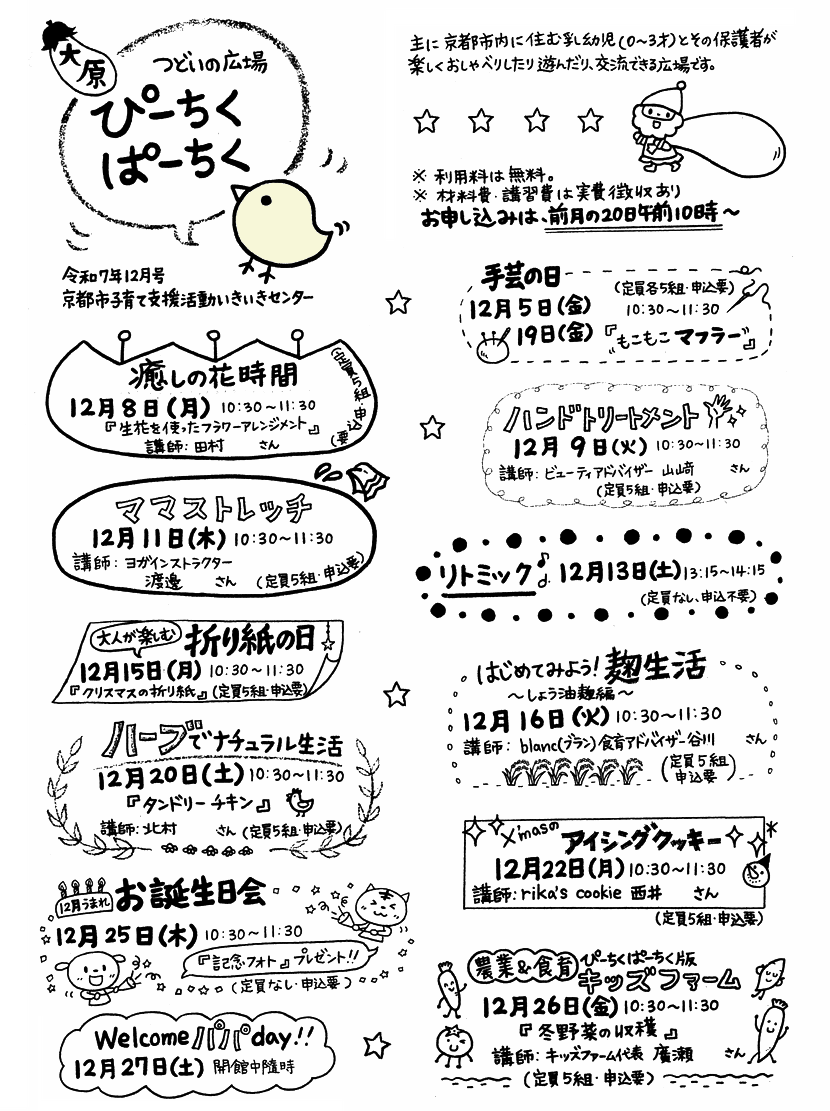 大原
つどいの広場
ぴーちく
ぱーちく
令和7年12月号
京都市子育て支援活動いきいきセンター
主に京都市内に住む乳幼児(0〜3才)とその保護者が
楽しくおしゃべりしたり遊んだり、交流できる広場です。
※ 利用料は無料。
※ 材料費・講習費は実費徴収あり
お申し込みは、前月の20日午前10時〜
手芸の日
(定員各5組・申込要)
12月5日(金) 10:30〜11:30
19日(金)『もこもこマフラー』
癒しの花時間
12月8日(月) 10:30〜11:30
『生花を使ったフラワーアレンジメント』
講師: 田村 さん
(定員5組・申込要)
ハンドトリートメント
12月9日(火) 10:30〜11:30
講師: ビューティアドバイザー 山﨑 さん
(定員5組・申込要)
ママストレッチ
12月11日(木) 10:30〜11:30
講師: ヨガインストラクター
渡邊 さん (定員5組・申込要)
リトミック♪ 12月13日(土) 13:15〜14:15
(定員なし、申込不要)
大人が楽しむ 折り紙の日
12月15日(月) 10:30〜11:30
『クリスマスの折り紙』(定員5組・申込要)
はじめてみよう! 麹生活
〜しょう油麹編〜
12月16日(火) 10:30〜11:30
講師: blanc(ブラン)食育アドバイザー谷川 さん
(定員5組
申込要)
ハーブでナチュラル生活
12月20日(土) 10:30〜11:30
『タンドリーチキン』
講師: 北村 さん (定員5組・申込要)
X'masの アイシングクッキー
12月22日(月) 10:30〜11:30
講師: rika's cookie 西井 さん
(定員5組・申込要)
12月うまれ お誕生日会
12月25日(木) 10:30〜11:30
『記念フォト』プレゼント!!
(定員なし・申込要)
農業&食育 ぴーちくぱーちく版
キッズファーム
12月26日(金) 10:30〜11:30
『冬野菜の収穫』
講師: キッズファーム代表 廣瀬 さん
(定員5組・申込要)
Welcomeパパday!!
12月27日(土) 開館中随時